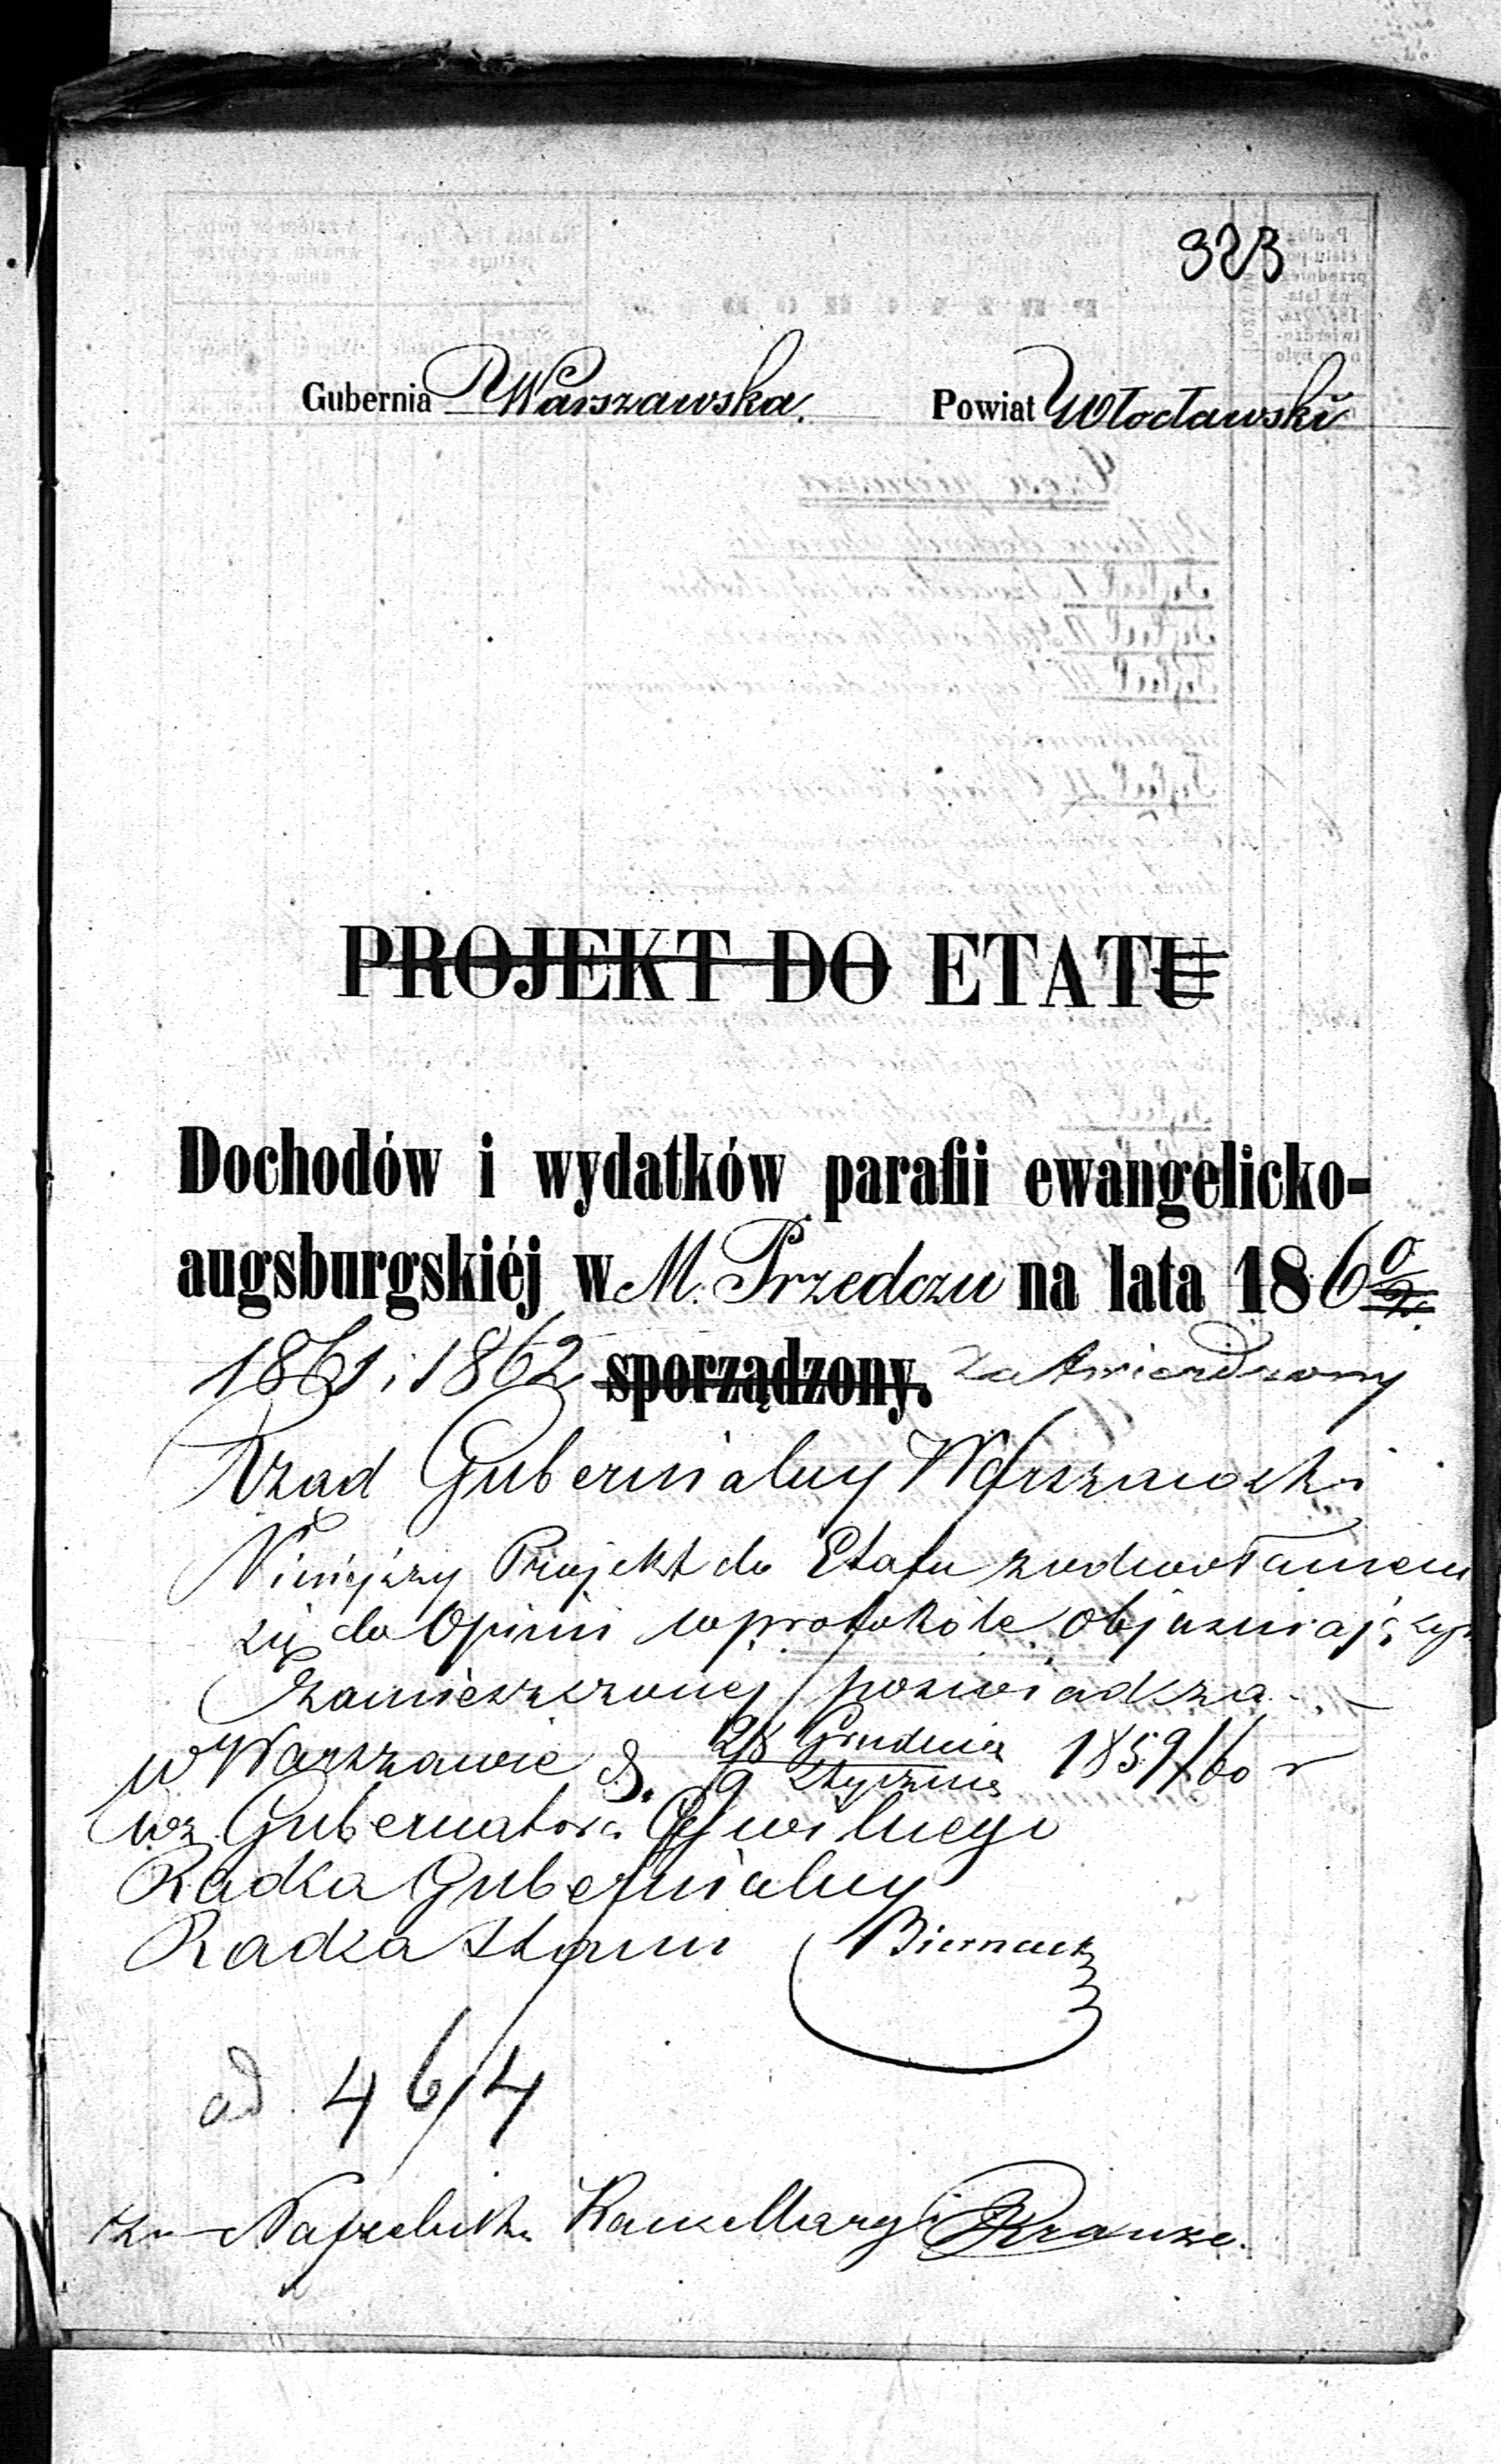 323
Gubernia Warszawska. Powiat Włocławski
PROJEKT DO ETATU
Dochodów i wydatków parafii ewangelicko-
augsburgskiéj w M. Przedczu na lata 1860/2.
1861 i 1862 sporządzony. Zatwierdzony
Rząd Gubernialny Warszawski
Niniejszy Projekt do Etatu z odwołaniem
się do Opinii w protokóle objaśniającym
zamieszczonej poświadcza.
w Warszawie d. 28 Grudnia / 9 Stycznia 1859/60 r
wz. Gubernatora Cywilnego
Radca Gubernialny
Radca Stanu Biernacki
ad 4614
Naczelnik Kancellaryi Krauze.